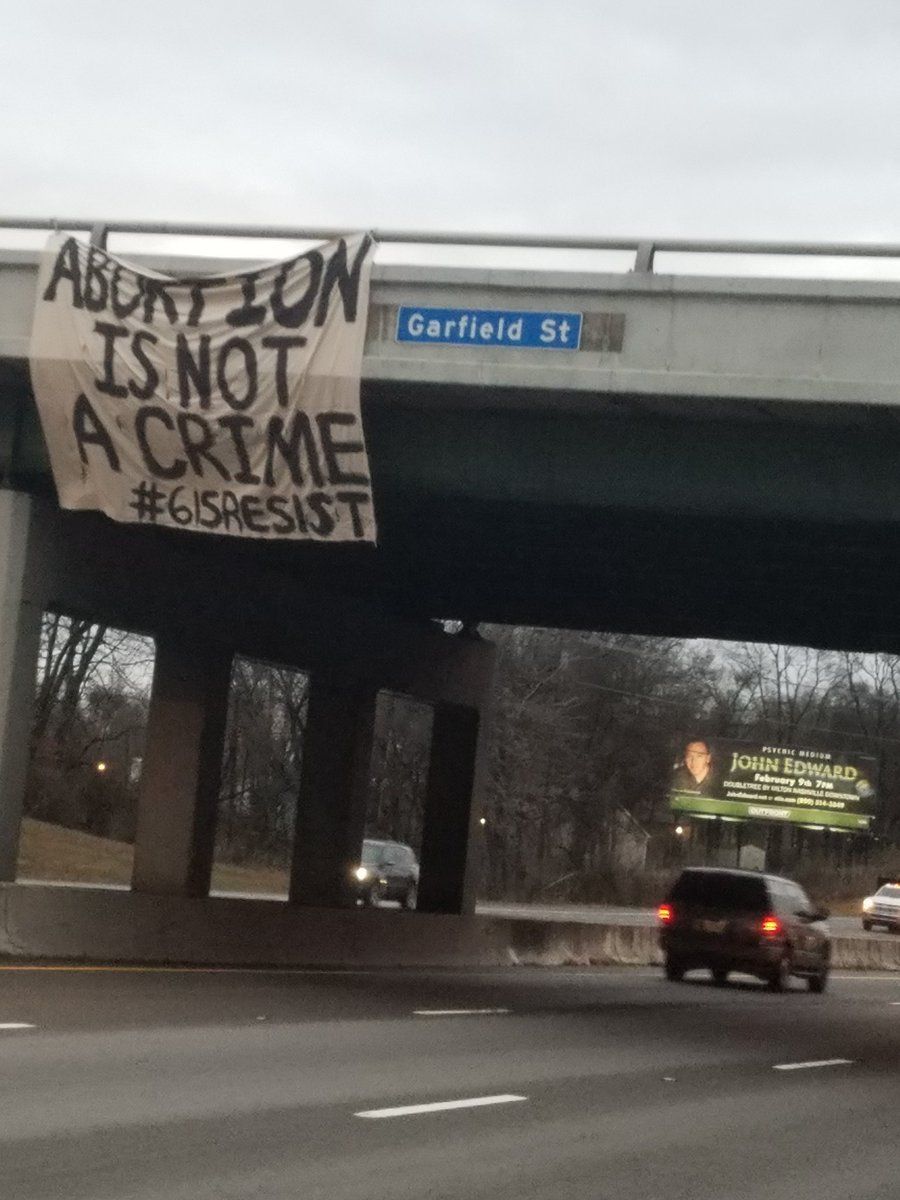 ABORTION
IS NOT
A CRIME
#615RESIST
Garfield St
PSYCHIC MEDIUM
JOHN EDWARD
February 9th 7PM
DOUBLETREE BY HILTON NASHVILLE DOWNTOWN
JohnEdward.net
(800) 514-3849
OUTFRONT